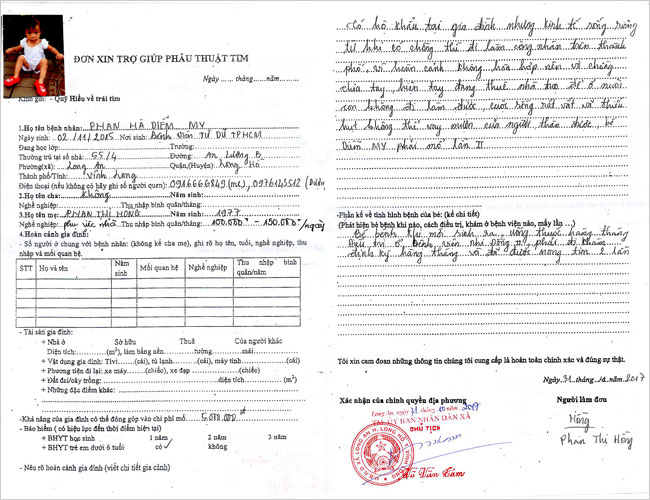 ĐƠN XIN TRỢ GIÚP PHẪU THUẬT TIM
Ngày...... tháng...... năm.........
Kính gửi: - Quỹ Hiểu về trái tim
1.Họ tên bệnh nhân: PHAN HÀ DIỄM MY
Ngày sinh: 02/11/2015 Nơi sinh: Bệnh Viện TỪ DŨ TPHCM
Đang học lớp: Trường:
Thường trú tại số nhà: 55/4 Đường: An Lương B
Phường(xã): Long An Quận,(Huyện): Long Hồ
Thành phố/Tỉnh: Vĩnh Long
Điện thoại (nếu không có hãy ghi số người quen): 0916666849 (mẹ), 0976143512 (Diễm
2.Họ tên cha: Không Năm sinh:
Nghề nghiệp: Thu nhập bình quân/tháng:
3.Họ tên mẹ: PHAN THỊ HỒNG Năm sinh: 1977
Nghề nghiệp: phụ việc nhà Thu nhập bình quân/tháng: 100.000đ - 150.000đ/ngày
4.Hoàn cảnh gia đình:
- Số người ở chung với bệnh nhân: (không kể cha mẹ), ghi rõ họ tên, tuổi, nghề nghiệp, thu
nhập và mối quan hệ.
STT Họ và tên Năm sinh Mối quan hệ Nghề nghiệp Thu nhập bình quân/năm
- Tài sản gia đình:
+ Nhà ở Sở hữu Thuê Của người khác
Diện tích:......(m²), làm bằng nền.........tường.........mái.........
+ Vật dụng gia đình: Tivi......(cái), tủ lạnh......(cái), máy tính......(cái)
+ Phương tiện đi lại: xe máy......(chiếc), xe đạp......(chiếc)
+ Đất đai/cây trồng:.........diện tích......(m²)
+ Những đặc điểm khác:
-Khả năng của gia đình có thể đóng góp vào chi phí mổ. 5.000.000đ
- Bảo hiểm (có hiệu lực đến thời điểm hiện tại)
+ BHYT học sinh 1 năm 2 năm 3 năm
+ BHYT trẻ em dưới 6 tuổi có ✓ không
- Nêu rõ hoàn cảnh gia đình (viết chi tiết gia cảnh)
- Có hộ khẩu tại gia đình nhưng kinh tế sống riêng
từ khi có chồng thì đi làm công nhân trên thành
phố, vì hoàn cảnh không hòa hợp nên vợ chồng
chia tay, hiện tay đang thuê nhà trọ để ở nuôi
con không đi làm được, cuộc sống rất vất vả thiếu
hụt không thể vay mượn của người thân được, bé
Diễm MY phải mổ lần II
-Phần kể về tình hình bệnh của bé: (kể chi tiết)
(Phát hiện bé bệnh khi nào, cách điều trị, khám ở bệnh viện nào, mấy lần ...)
Bé bệnh khi mới sinh ra, uống thuốc hàng tháng
điều trị ở bệnh viện nhi đồng II, phải đi khám
định kỳ hàng tháng và đã được mong tim 2 lần
Tôi xin cam đoan những thông tin chúng tôi cung cấp là hoàn toàn chính xác và đúng sự thật.
Ngày 31 tháng 10 năm 2017
Xác nhận của chính quyền địa phương Người làm đơn
Long An, ngày 31 tháng 10 năm 2017
TM. ỦY BAN NHÂN DÂN XÃ
CHỦ TỊCH
Hồng
Phan Thị Hồng